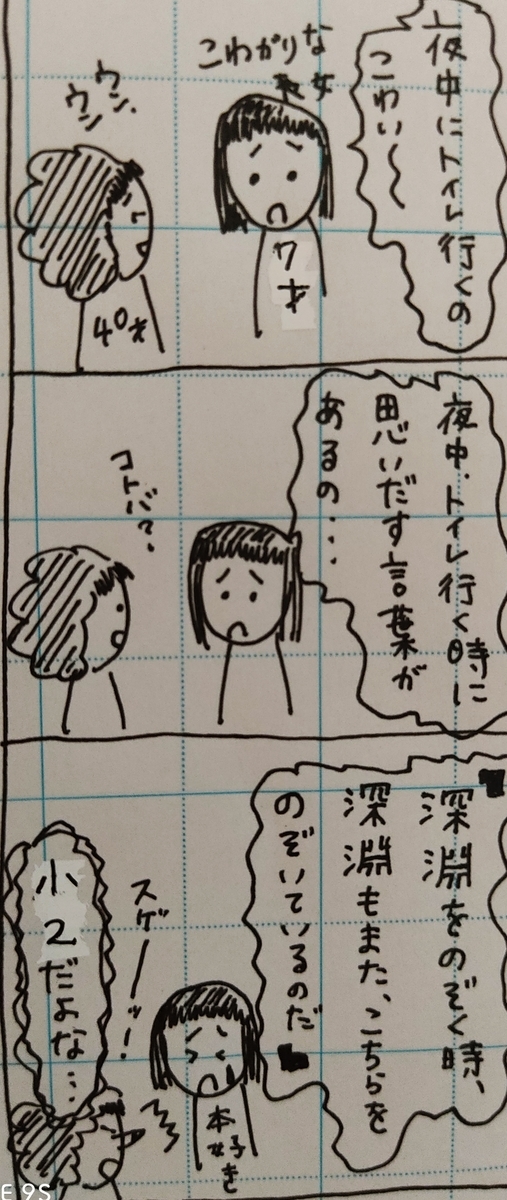 夜中にトイレ行くの
こわい〜
こわがりな
長女
7才
ウン、
ウン
40才
夜中、トイレ行く時に
思いだす言葉が
あるの…
コトバ?
深淵をのぞく時、
深淵もまた、こちらを
のぞいているのだ
本好き
女子
スゲーッ!
小2だよな…
E 9S